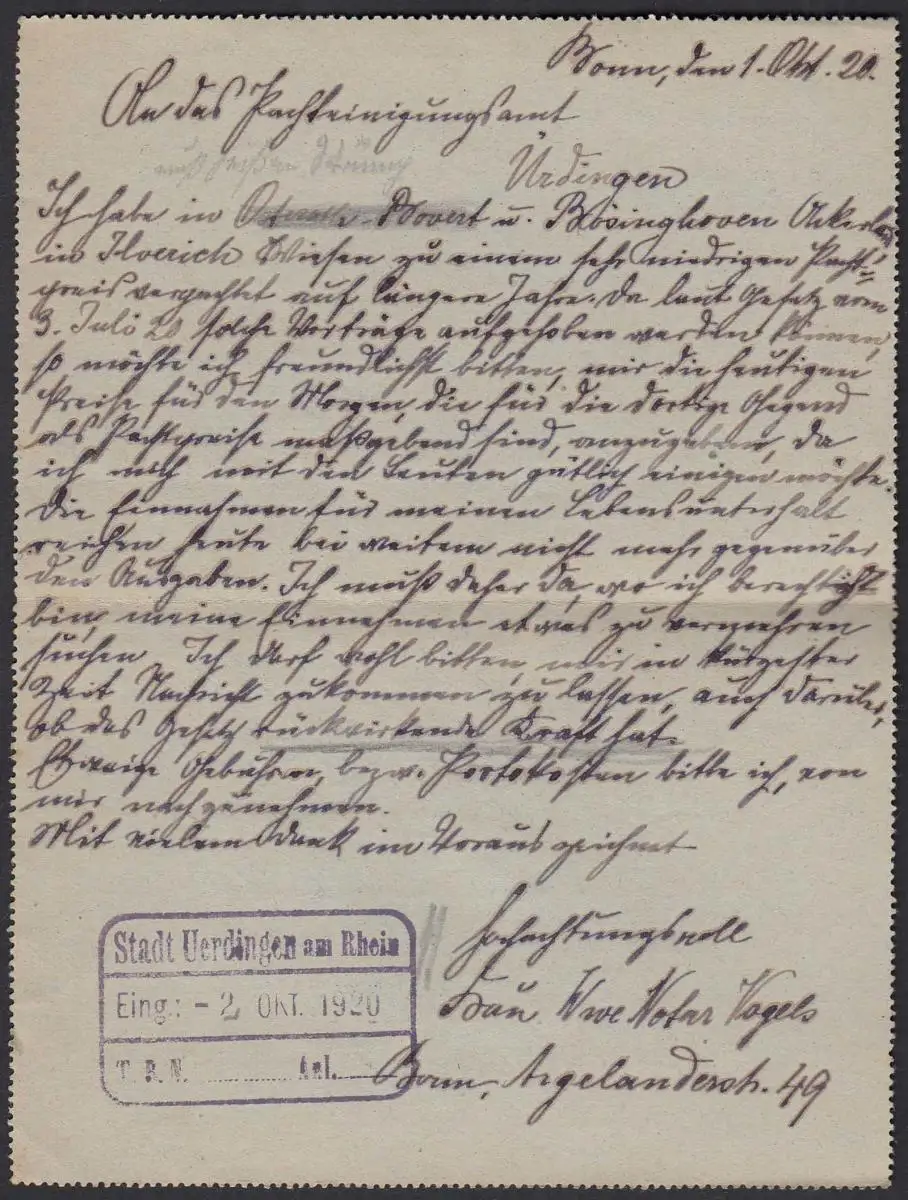 Bonn, den 1. Okt. 20.
An das Pachteinigungsamt
Ürdingen
Ich habe in Osterath-Bovert u. Bösinghoven Ackerland
in Ilverich Wiesen zu einem sehr niedrigen Pacht=
preis verpachtet auf längere Jahre. Da laut Gesetz vom
3. Juli 20 solche Verträge aufgehoben werden können,
so möchte ich freundlichst bitten, mir die heutigen
Preise für den Morgen, die für die dortige Gegend
als Pachtpreise maßgebend sind, anzugeben, da
ich mich mit den Leuten gütlich einigen möchte.
Die Einnahmen für meinen Lebensunterhalt
reichen heute bei weitem nicht mehr gegenüber
den Ausgaben. Ich muß daher da, wo ich berechtigt
bin, meine Einnahmen etwas zu vermehren
suchen. Ich darf wohl bitten, mir in kürzester
Zeit Nachricht zukommen zu lassen, auch darüber,
ob das Gesetz rückwirkende Kraft hat.
Etwaige Gebühren, bezw. Portokosten bitte ich, von
mir nachzunehmen.
Mit vielem Dank im Voraus zeichnet
Hochachtungsvoll
Frau Wwe Notar Vogels
Bonn, Argelanderstr. 49
Stadt Uerdingen am Rhein
Eing.: - 2. OKT. 1920
T. B. N. ............ Anl. ......